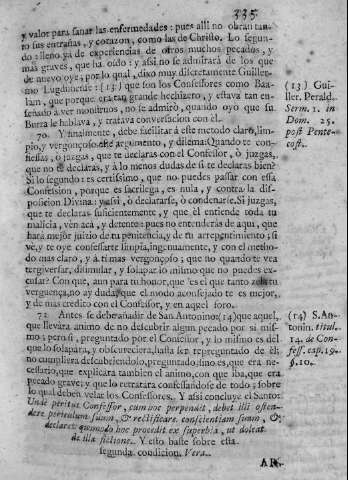 335
y valor para sanar las enfermedades: pues assi no obran tan-
to sus entrañas, y corazon, como las de Christo. Lo segun-
do: lleno ya de experiencias de otros muchos pecados, y
mas graves, que ha oido: y assi no se admirarà de los que
de nuevo oye; por lo qual, dixo muy discretamente Guiller-
mo Lugdunense: (13) que son los Confessores como Baa-
lam, que porque era tan grande hechizero, y estava tan en-
señado à ver monstruos, no se admirò, quando oyo que su
Burra le hablava, y tratava conversacion con el.
70. Y finalmente, debe facilitar à este metodo claro, lim-
pio, y vergonçoso este argumento, y dilema: Quando te con-
fiessas, ò juzgas, que te declaras con el Confessor, ò juzgas,
que no te declaras, y à lo menos dudas de si te declaras bien?
Si lo segundo: es certissimo, que no puedes passar con essa
Confession, porque es sacrilega, es nula, y contra la dis-
posicion Divina: y assi, ò declararse, ò condenarse. Si juzgas,
que te declaras suficientemente, y que èl entiende toda tu
malicia, ven acà, y detente: pues no entenderàs de aqui, que
harà mejor juizio de tu penitencia, y de tu arrepentimiento, si
vè, y te oye confessarte limpia, ingenuamente, y con el metho-
do mas claro, y à ti mas vergonçoso; que no quando te vea
tergiversar, dissimular, y solapar lo mismo que no puedes ex-
cusar? Con que, aun para tu honor, que es el que tanto
verguença, no ay duda, que el modo aconsejado te es mejor,
y de mas credito con el Confessor, y en aquel foro.
71. Antes se debe añadir de San Antonino: (14) que aquel,
que llevàra animo de no descubrir algun pecado por si mis-
mo; pero si, preguntado por el Confessor, y lo mismo es del
que lo solapara, y obscureciera, hasta ser repreguntado de èl;
no cumpliera descubriendolo, preguntado; sino es, que era ne-
cessario, que explicàra tambien el animo, con que iba, que era
pecado grave; y que lo retratàra confessandose de todo; sobre
lo qual deben velar los Confessores. Y assi concluye el Santo:
Unde peritus Confessor, cum hoc perpendit, debet illi osten-
dere periculum suum, & rectificare conscientiam suam, &
declaret quomodo hoc procedit ex superbia, ut doleat
de illa fictione. Y esto baste sobre esta
segunda condicion. Vera.
AR-
(13) Gui-
ller. Perald.
Serm. 1. in
Dom. 25.
post Pente-
cost.
(14) S. An-
tonin. titul.
14. de Con-
fess. cap. 19.
§. 10.